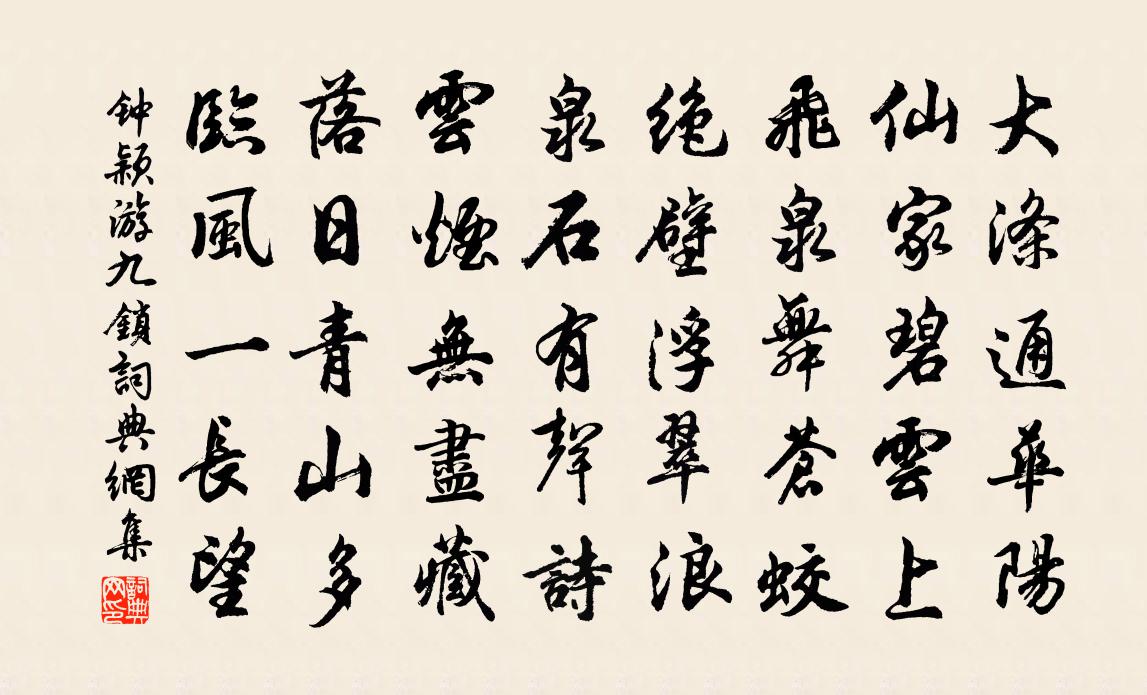 大滌通華陽
仙家碧雲上
飛泉舞蒼蛟
絶壁浮翠浪
泉石有聲詩
雲煙無盡藏
落日青山多
臨風一長望
钟颖游九鎖詞典網集
詞典網印